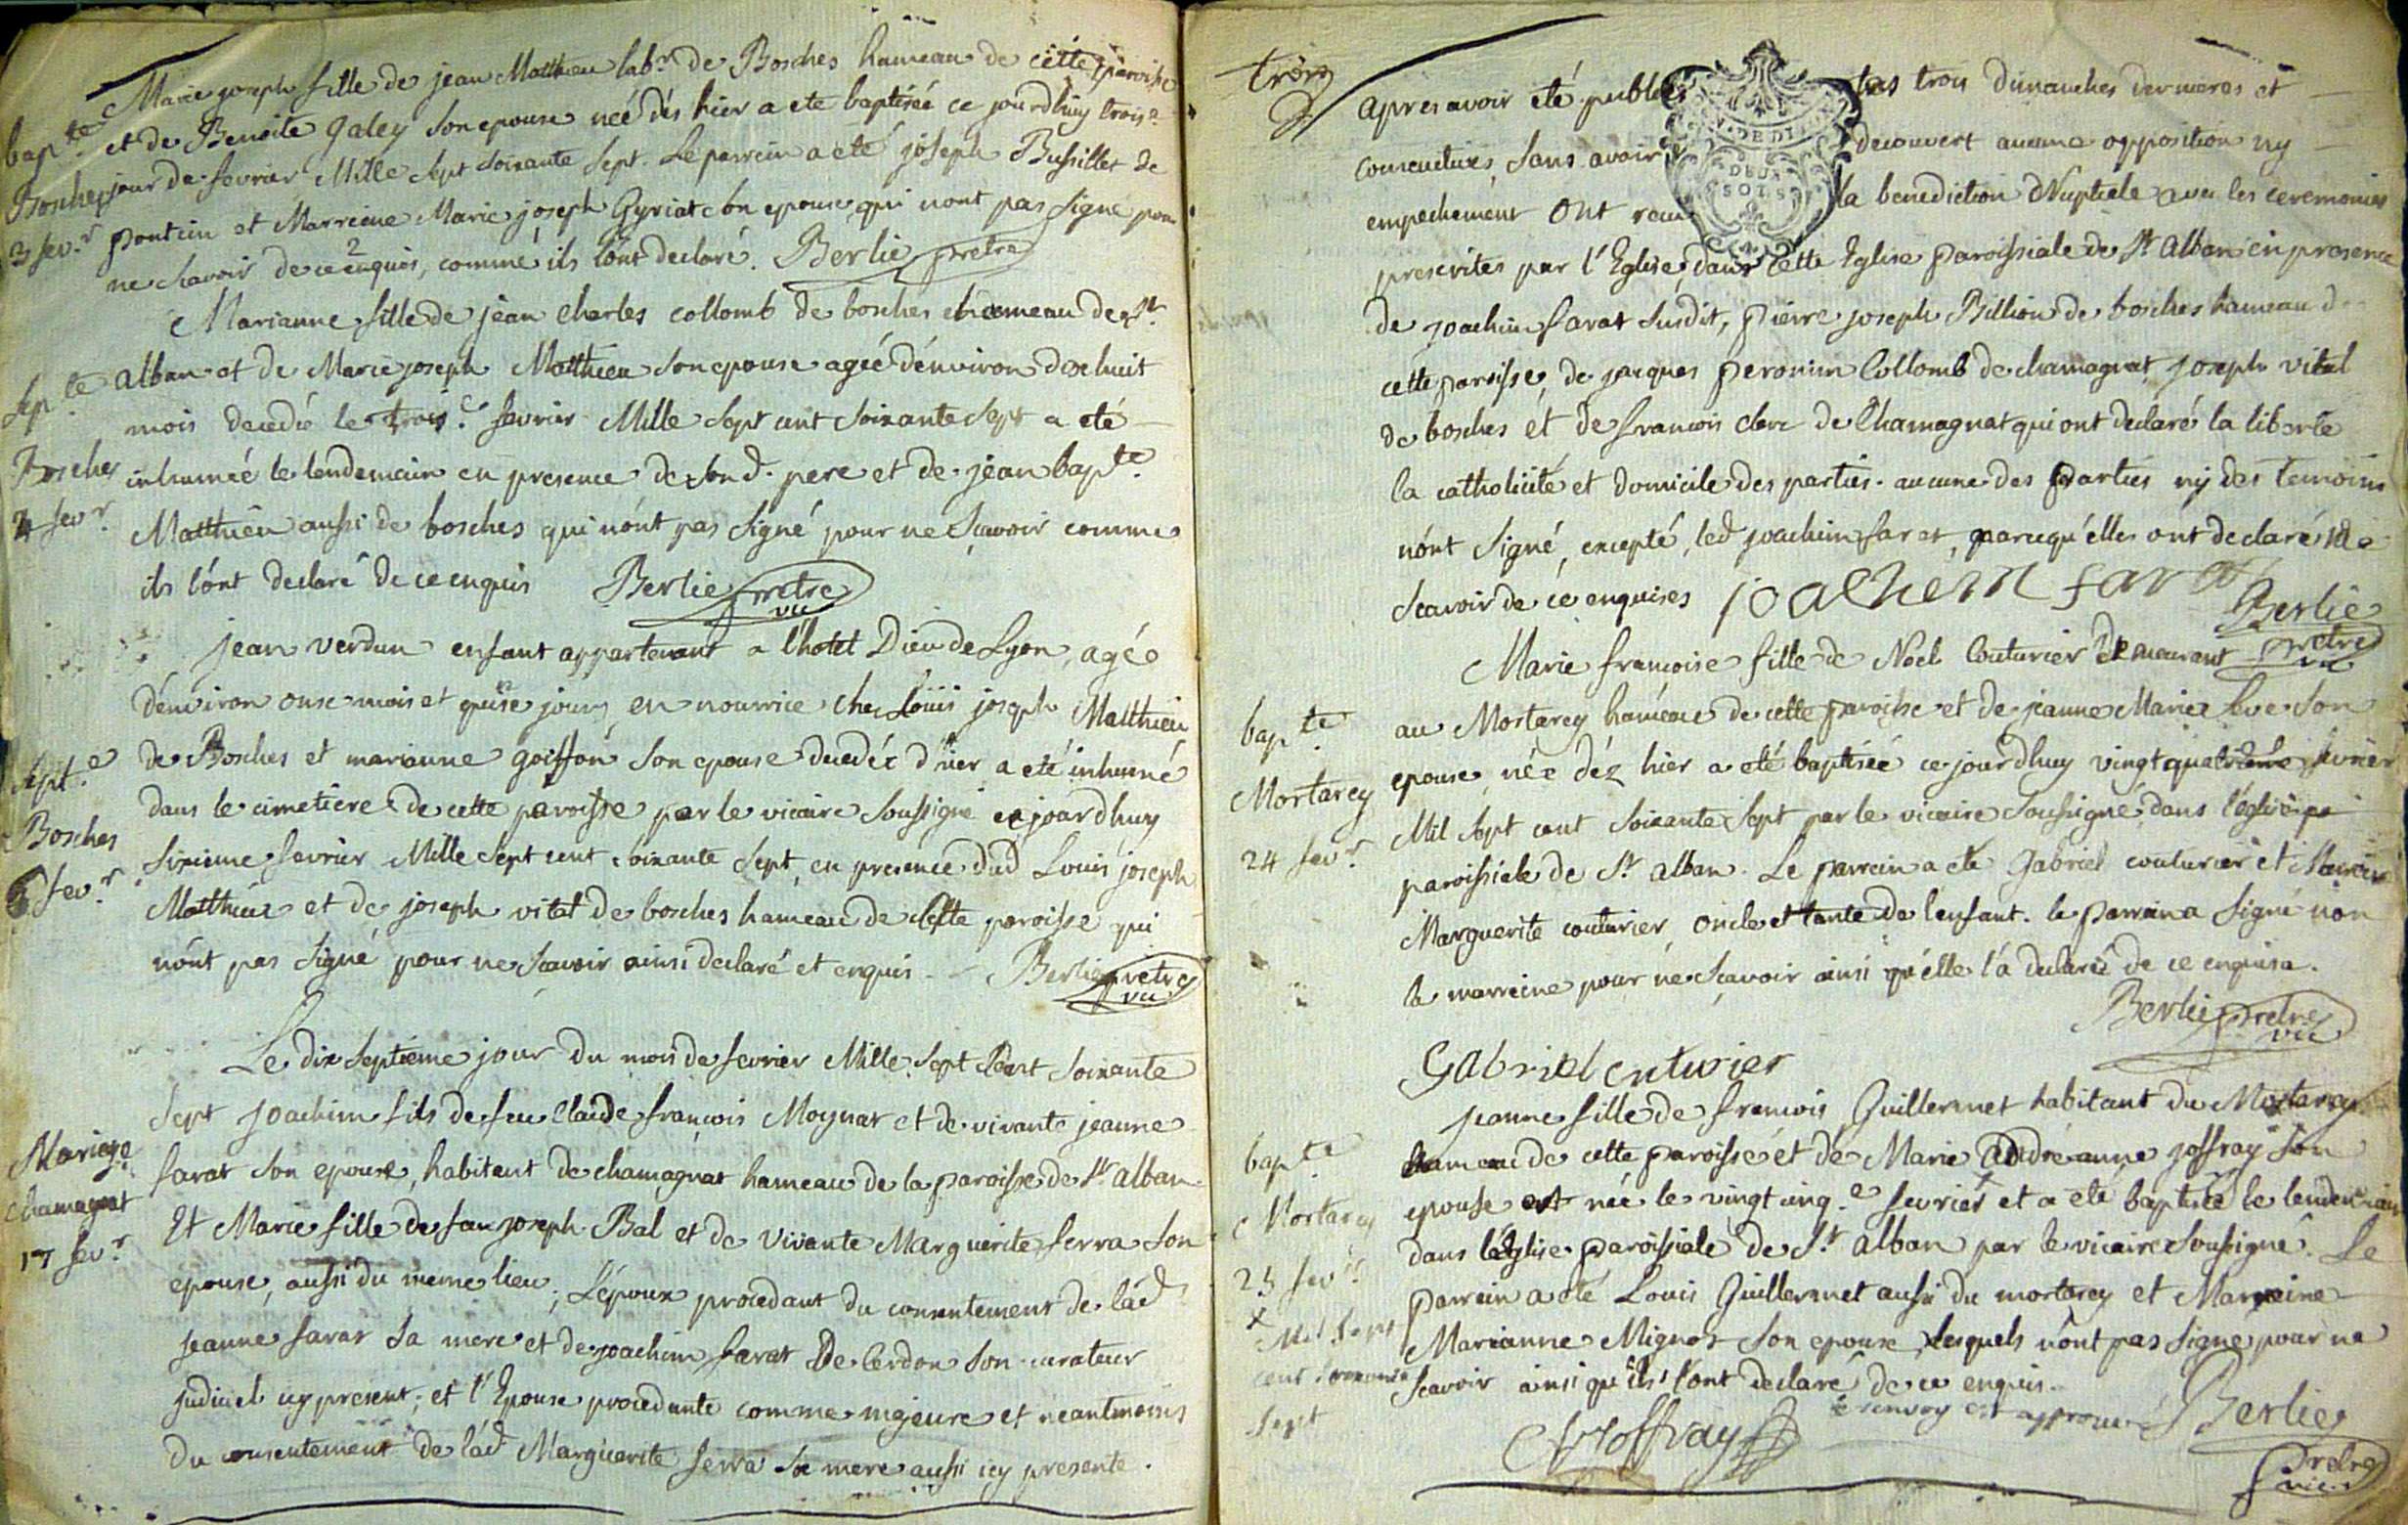 Marie joseph fille de jean Matthieu labr de Bosches hameau de cette paroisse
bapte et de Benoite Galey son epouse neé dés hier a ete baptiseé ce jourdhuy troise
Bosches jour de fevrier Mille sept soixante sept. Le parrein a eté joseph Bussillet de
3 fevr poncin et Marreine Marie joseph Gyriat son epouse qui nont pas signé pour
ne scavoir de ce enquis, comme ils lont declaré. Berlie pretre
Marianne fille de jean Charles collomb de bosches hameau de st
septe alban et de Marie joseph Matthieu son epouse ageé dénviron dixhuit
mois decedé le troise fevrier Mille sept cent soixante sept a eté
Bosches inhumeé le lendemain en presence de son d. pere et de jean bapte
4 fevr Matthieu aussi de bosches qui nónt pas signé pour ne scavoir comme
ils lónt declaré de ce enquis Berlie pretre vic
jean verdun enfant appartenant a lhotel Dieu de Lyon, agé
dénviron onse mois et quinse jours en nourrice chez Louis joseph Matthieu
septe de Bosches et marianne goiffon son epouse decedé d'hier a eté inhumé
dans le cimetiere de cette paroisse par le vicaire soussigné cejourdhuy
Bosches sixieme fevrier Mille sept cent soixante sept, en presence dud Louis joseph
6 fevr Matthieu et de joseph vital de bosches hameau de cette paroisse qui
nónt pas signé pour ne scavoir ainsi declaré et enquis - Berlie pretre vic
Le dix septieme jour du mois de fevrier Mille sept cent soixante
sept joachim fils de feu claude françois Moynat et de vivante jeanne
Mariage farat son epouse, habitant de chamagnat hameau de la paroisse de st alban
chamagnat Et Marie fille de feu joseph Bal et de vivante Marguerite ferra son
17 fevr epouse, aussi du meme lieu; L'époux procedant du consentement de lád
jeanne farat sa mere et de joachim farat de Cerdon son curateur
judiciel icy present; et l'Epouse procedante comme majeure et neantmoins
du consentement de lád Marguerite ferra sa mere aussi icy presente.
trois
apres avoir eté publiés les trois dimanches dernieres et
consecutives, sans avoir decouvert aucune opposition ny
empechement ont recu la benediction Nuptiale avec les ceremonies
DEUX
SOLS
prescrites par l'Eglise, dans cette Eglise paroissiale de st alban en presence
de joachim farat susdit, pierre joseph Billion de bosches hameau de
cette paroisse, de jacques peronin Collomb de chamagnat joseph vital
de bosches et de francois clerc de Chamagnat qui ont declaré la liberte
la catholicité et domicile des parties. aucune des parties ny des temoins
nónt signé, excepté, led joachim farat, parcequ'elles ónt declaré ne
scavoir de ce enquises joachein farat Berlie
pretre vic
Marie francoise fille de Noel Couturier demeurant
bapte au Mortarey hameau de cette paroisse et de jeanne Marie Eve son
Mortarey epouse, née déz hier a eté baptiseé ce jourdhuy vingt quatrieme fevrier
24 fevr Mil sept cent soixante sept par le vicaire soussigné dans l'eglise
paroissiale de st alban. Le parrein a eté Gabriel couturier et Marreine
Marguerite couturier, oncle et tante de lenfant. le parrain a signé non
la marreine pour ne scavoir ainsi qu'élle lá declaré de ce enquise.
Berlie pretre vic
Gabriel cuturier
jeanne fille de francois Guillermet habitant du Mortarey
bapte hameau de cette paroisse et de Marie andreanne joffray son
Mortarey epouse est née le vingt cinqe fevrier × et a eté baptisée le lendemain
25 fevr dans léglise paroissiale de St alban par le vicaire soussigné. Le
parrein a eté Louis Guillermet aussi du mortarey et Marreine
× Mil sept Marianne Mignot son epouse lesquels nónt pas signé pour ne
cent soixante scavoir ainsi qu'ils lont declaré de ce enquis.
sept le renvoy est approuvé Berlie
Joffray pretre vic.